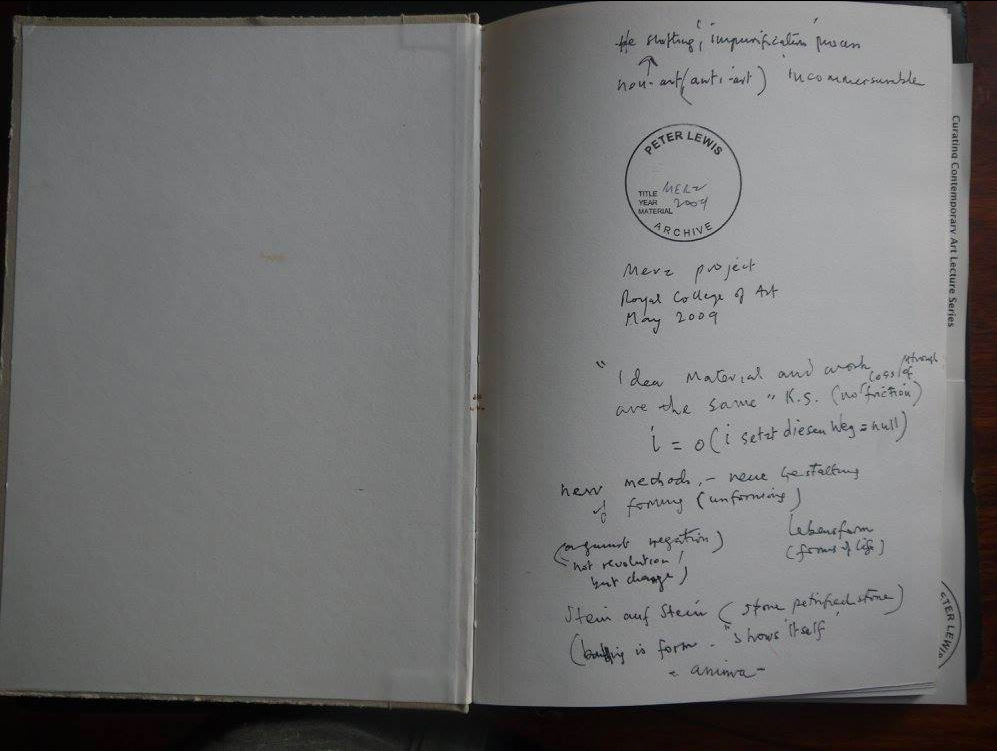 the slotting, 'impurification' process
non-art (anti-art) incommensurable
PETER LEWIS
TITLE MERZ
YEAR 2009
MATERIAL
ARCHIVE
Merz project
Royal College of Art
May 2009
"Idea Material and work
are the same" K.S. (no friction)
through
loss of
i = 0 (i setzt diesen Weg = null)
new methods, - neue Gestaltung
of forming (unforming)
(against negation)
"not revolution
but change)
Lebensform
(forms of life)
Stein auf Stein (stone petrified stone)
is form - "shows itself"
- anima -
Curating Contemporary Art Lecture Series
TER LEWIS